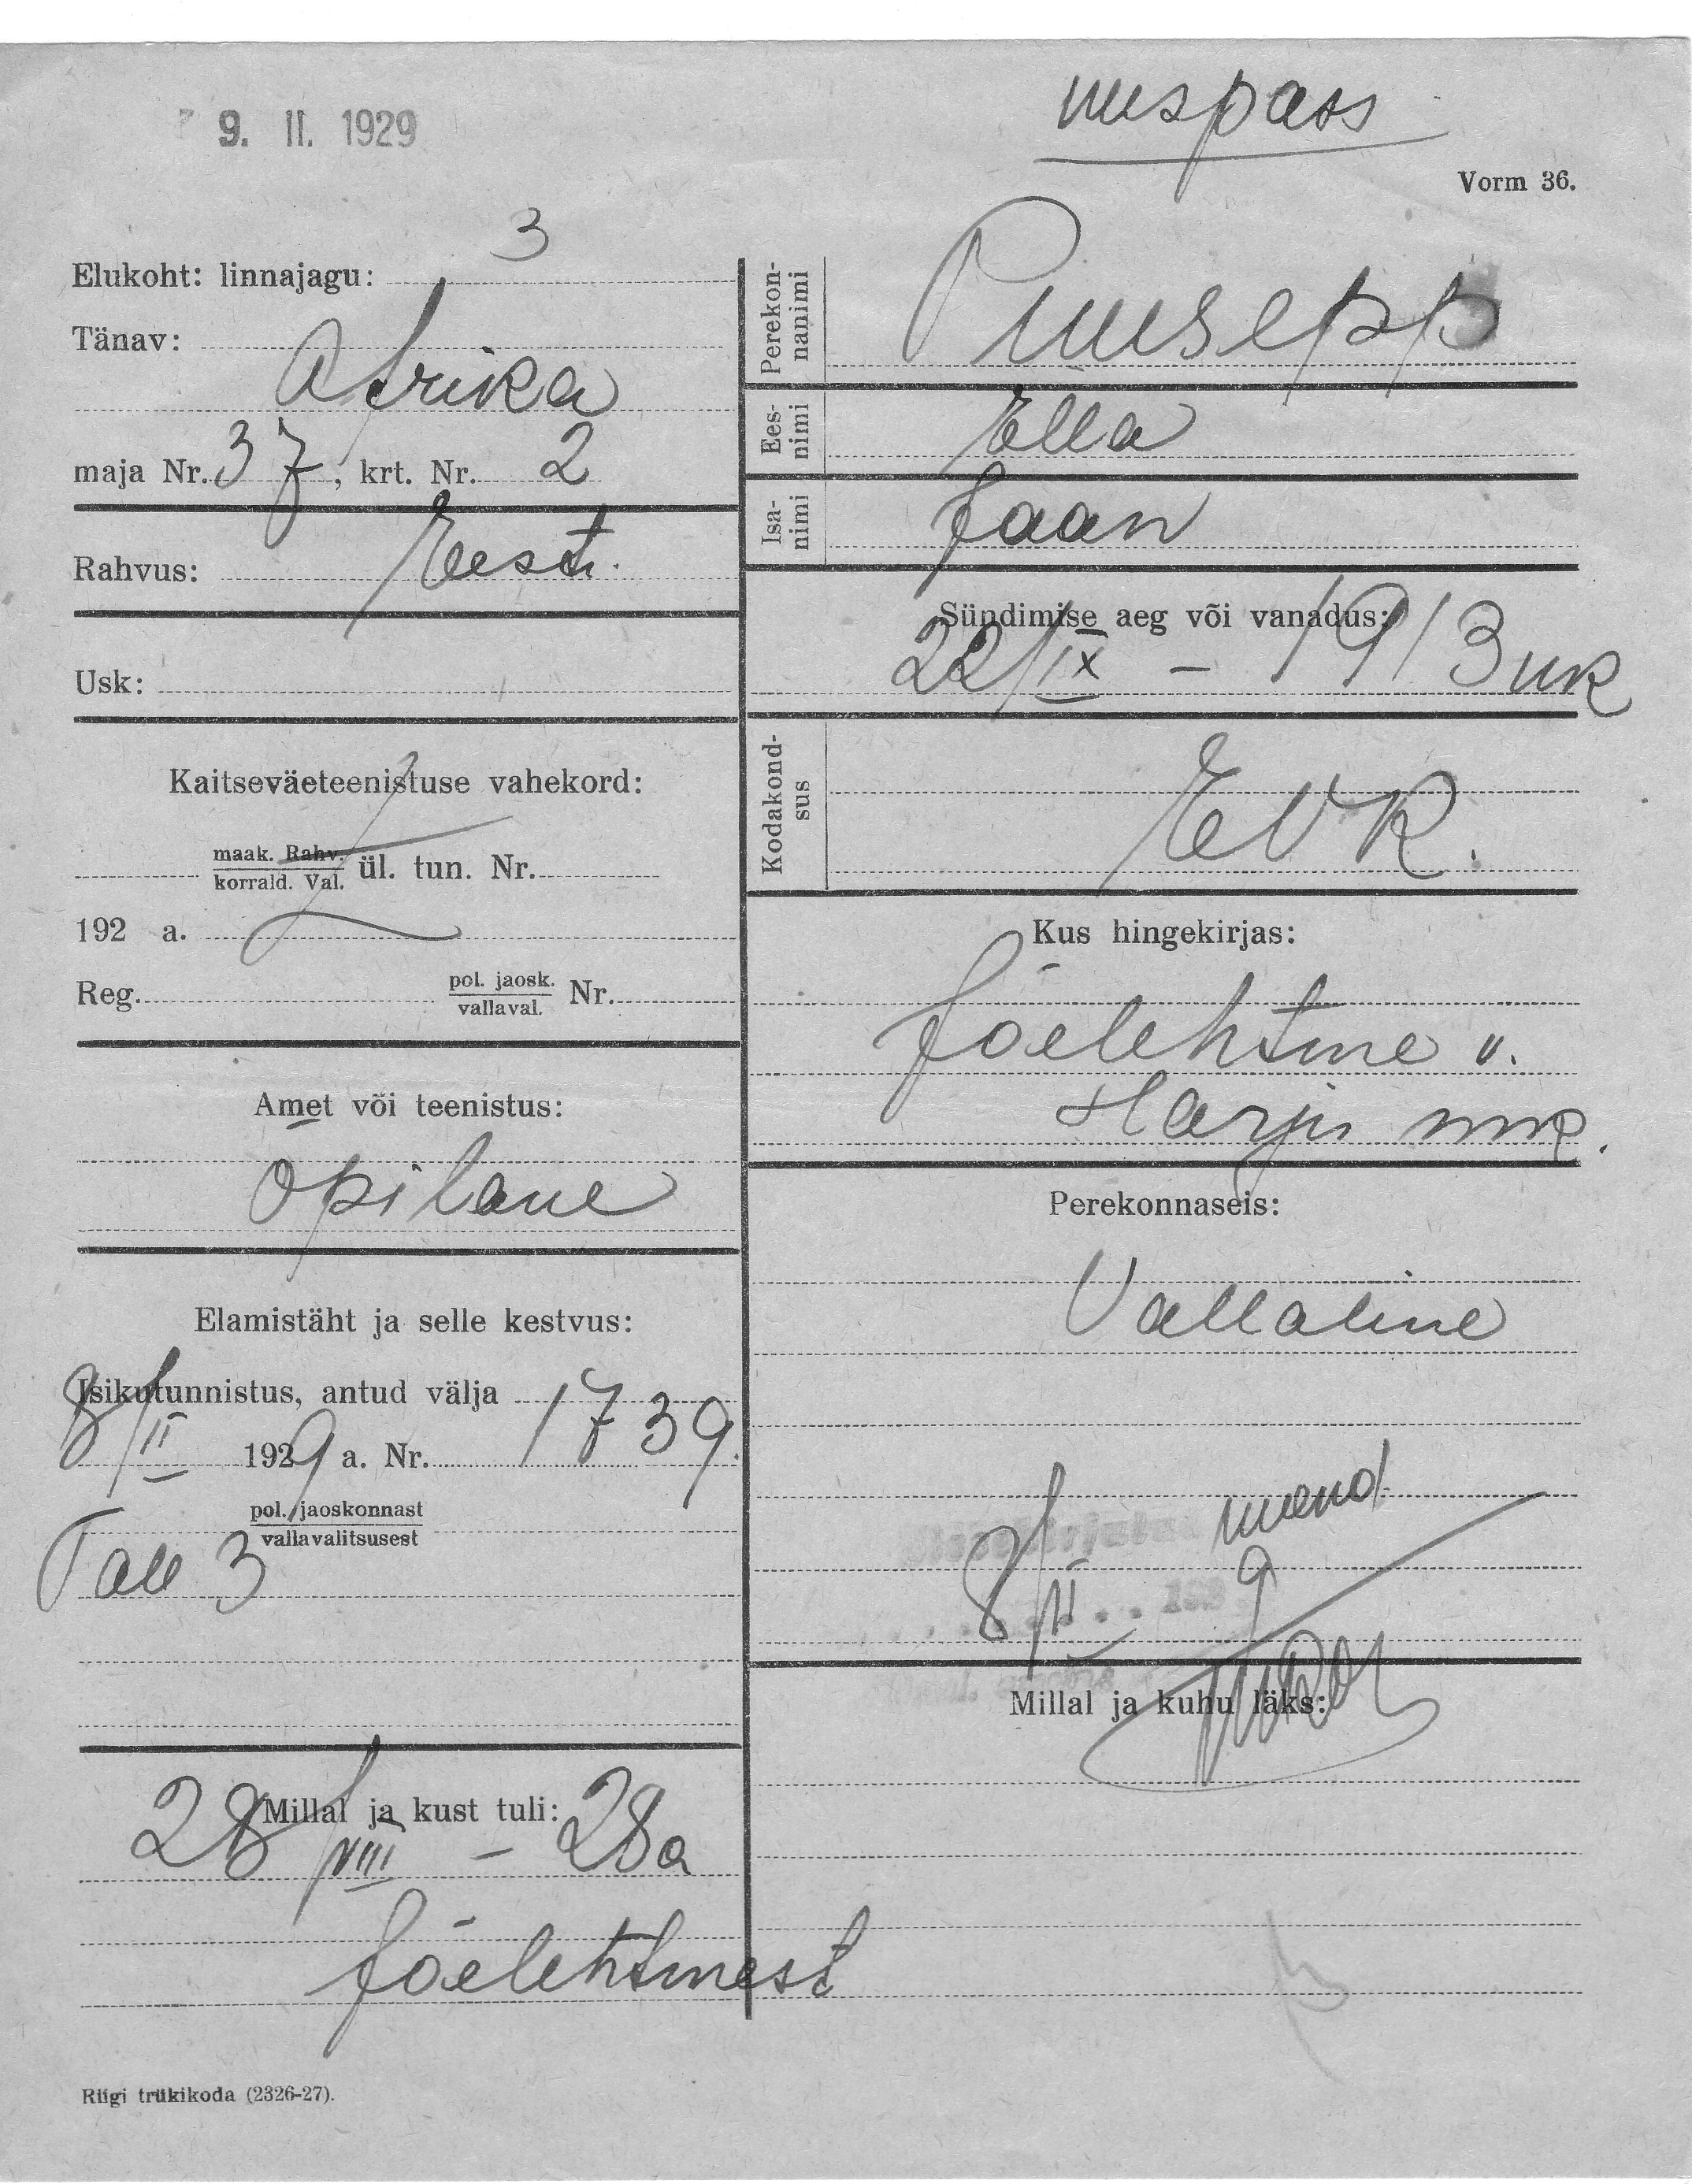 9. II. 1929
uuspass
Vorm 36.
Elukoht: linnajagu: 3
Tänav:
Afrika
maja Nr. 37, krt. Nr. 2
Rahvus: Eesti.
Usk:
Kaitseväeteenistuse vahekord:
maak. Rahv.
korrald. Val. ül. tun. Nr.
192 a.
Reg. pol. jaosk.
vallaval. Nr.
Amet või teenistus:
Õpilane
Elamistäht ja selle kestvus:
Isikutunnistus, antud välja
8/II 1929 a. Nr. 1739.
pol. jaoskonnast
vallavalitsusest
Tall 3
Millal ja kust tuli:
28/VIII – 28a
Jõelehtmest
Riigi trükikoda (2326-27).
Perekon-
nanimi Puusepp
Ees-
nimi Ella
Isa-
nimi Jaan
Sündimise aeg või vanadus:
22/IX – 1913 uk
Kodakond-
sus EVK.
Kus hingekirjas:
Jõelehtme v.
Harju mk.
Perekonnaseis:
Vallaline
8/II 192 9
Millal ja kuhu läks: